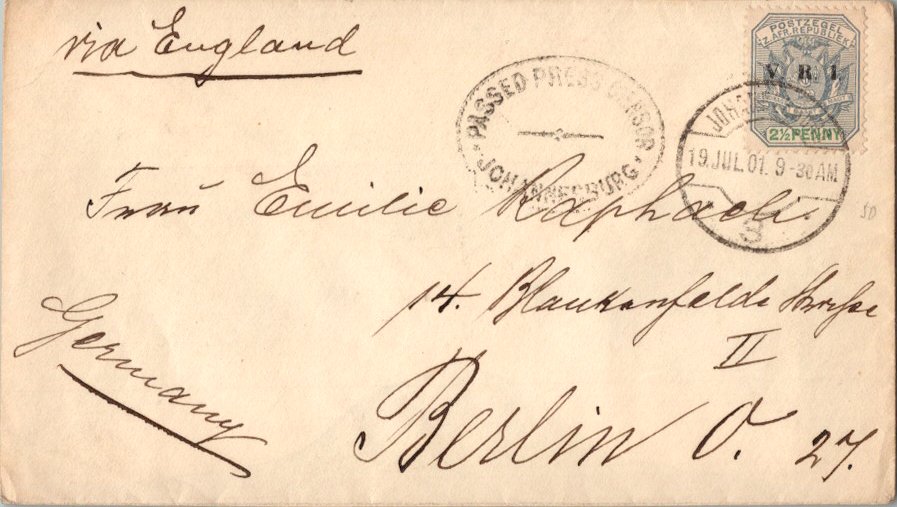 via England
POSTZEGEL
Z. AFR. REPUBLIEK
V. R. I.
2½ PENNY
PASSED PRESS CENSOR
JOHANNESBURG
19 JUL 01. 9-30 AM
3
Frau Emilie Raphaeli
14. Blankenfelde Strasse
II
Germany
Berlin O. 27.